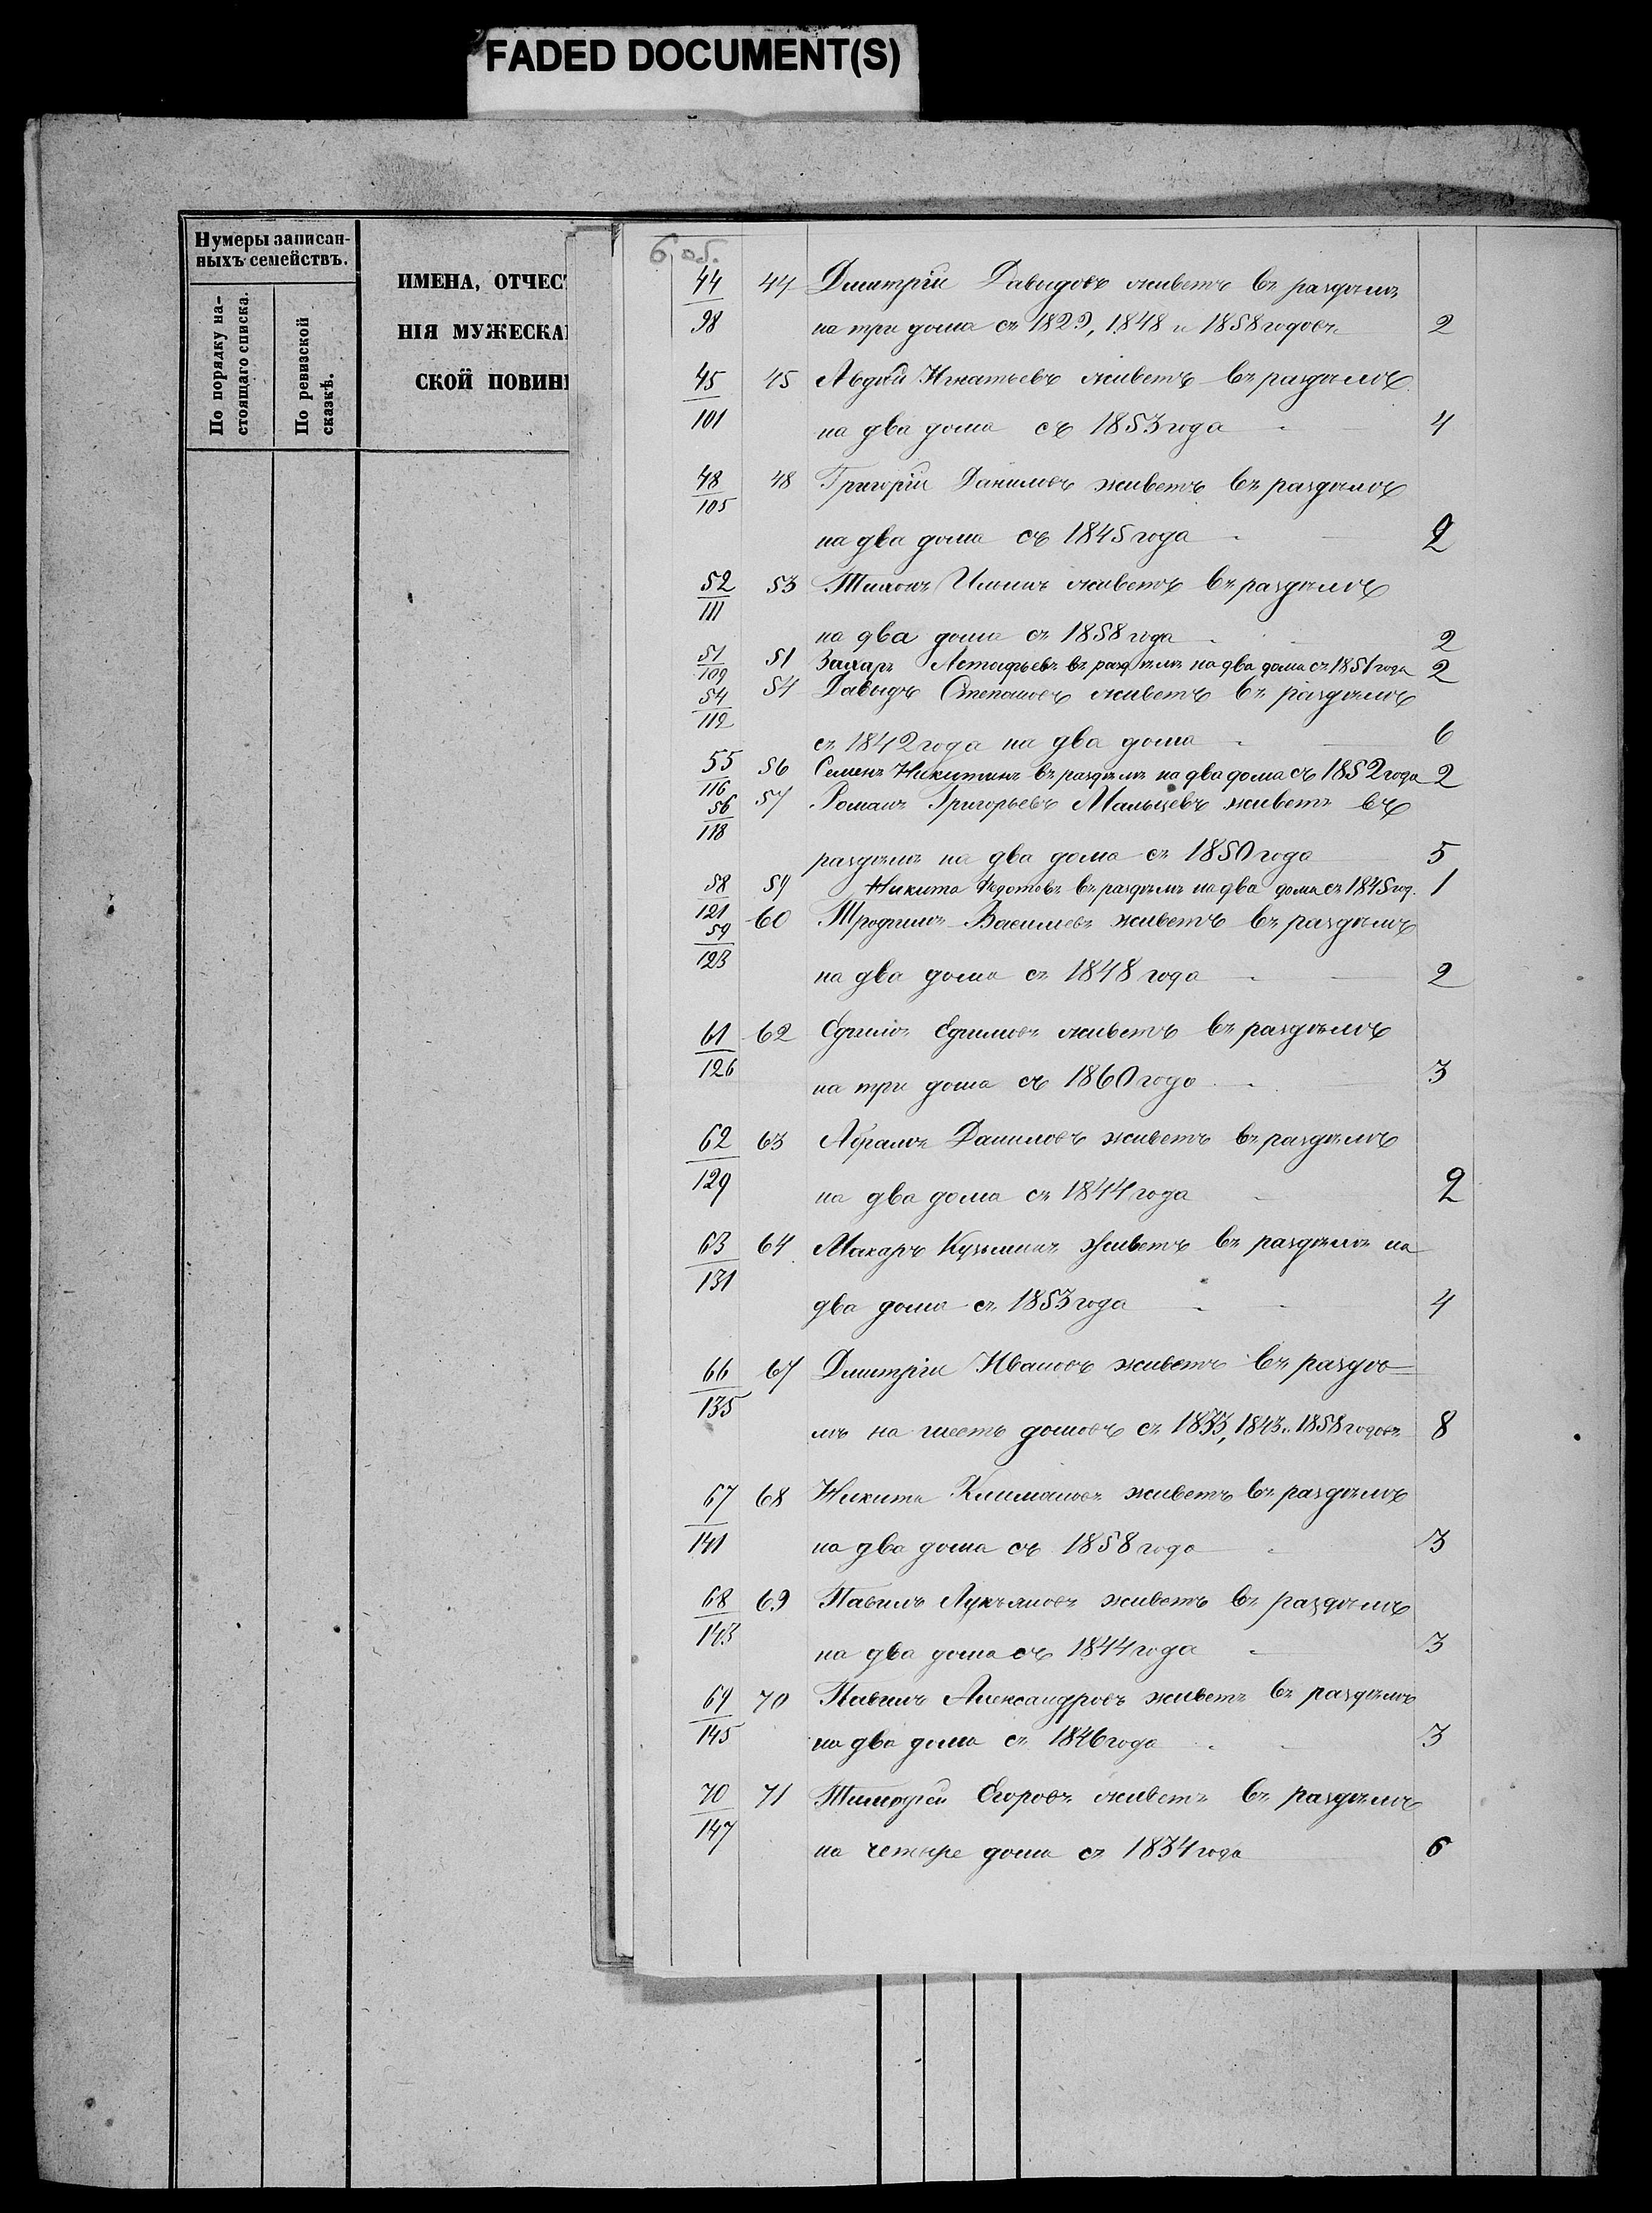 FADED DOCUMENT(S)
Нумеры записан-
ныхъ семействъ.
По порядку на-
стоящаго списка.
По ревизской
сказкѣ.
ИМЕНА, ОТЧЕС
НІЯ МУЖЕСКА
СКОЙ ПОВИН
6 об.
44 44 Дмитрій Давыдовъ живетъ въ раздѣлѣ
98 на три дома съ 1829, 1848 и 1858 годовъ 2
45 45 Авдѣй Игнатьевъ живетъ въ раздѣлѣ
101 на два дома съ 1853 года 4
48 48 Григорій Даниловъ живетъ въ раздѣлѣ
105
на два дома съ 1845 года 2
52 53 Тихонъ Ильинъ живетъ въ раздѣлѣ
111
на два дома съ 1858 года 2
51 51 Захаръ въ раздѣлѣ на два дома съ 1851 года 2
109
54 54 Давыдъ Степановъ живетъ въ раздѣлѣ
112
съ 1842 года на два дома 6
55 56 Семенъ Никитинъ въ раздѣлѣ на два дома съ 1852 года 2
116
56 57 Романъ Григорьевъ Мальцевъ живетъ въ
118
раздѣлѣ на два дома съ 1850 года 5
58 59 Никита Федотовъ въ раздѣлѣ на два дома съ 1845 год. 1
121
59 60 Трофимъ Васильевъ живетъ въ раздѣлѣ
123
на два дома съ 1848 года 2
61 62 Ефимъ Ефимовъ живетъ въ раздѣлѣ
126 на три дома съ 1860 года 3
62 63 Абрамъ Даниловъ живетъ въ раздѣлѣ
129 на два дома съ 1844 года 2
63 64 Макаръ Кузьминъ живетъ въ раздѣлѣ на
131
два дома съ 1853 года 4
66 67 Дмитрій Ивановъ живетъ въ раздѣ=
135
лѣ на шесть домовъ съ 1833, 1843 и 1858 годовъ 8
67 68 Никита Климановъ живетъ въ раздѣлѣ
141 на два дома съ 1858 года 3
68 69 Павелъ Лукьяновъ живетъ въ раздѣлѣ
143 на два дома съ 1844 года 3
69 70 Павелъ Александровъ живетъ въ раздѣлѣ
145 на два дома съ 1846 года 3
70 71 Тимофей Егоровъ живетъ въ раздѣлѣ
147 на четыре дома съ 1834 года 6